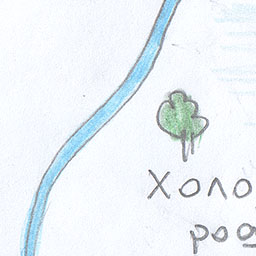 Холо
роа